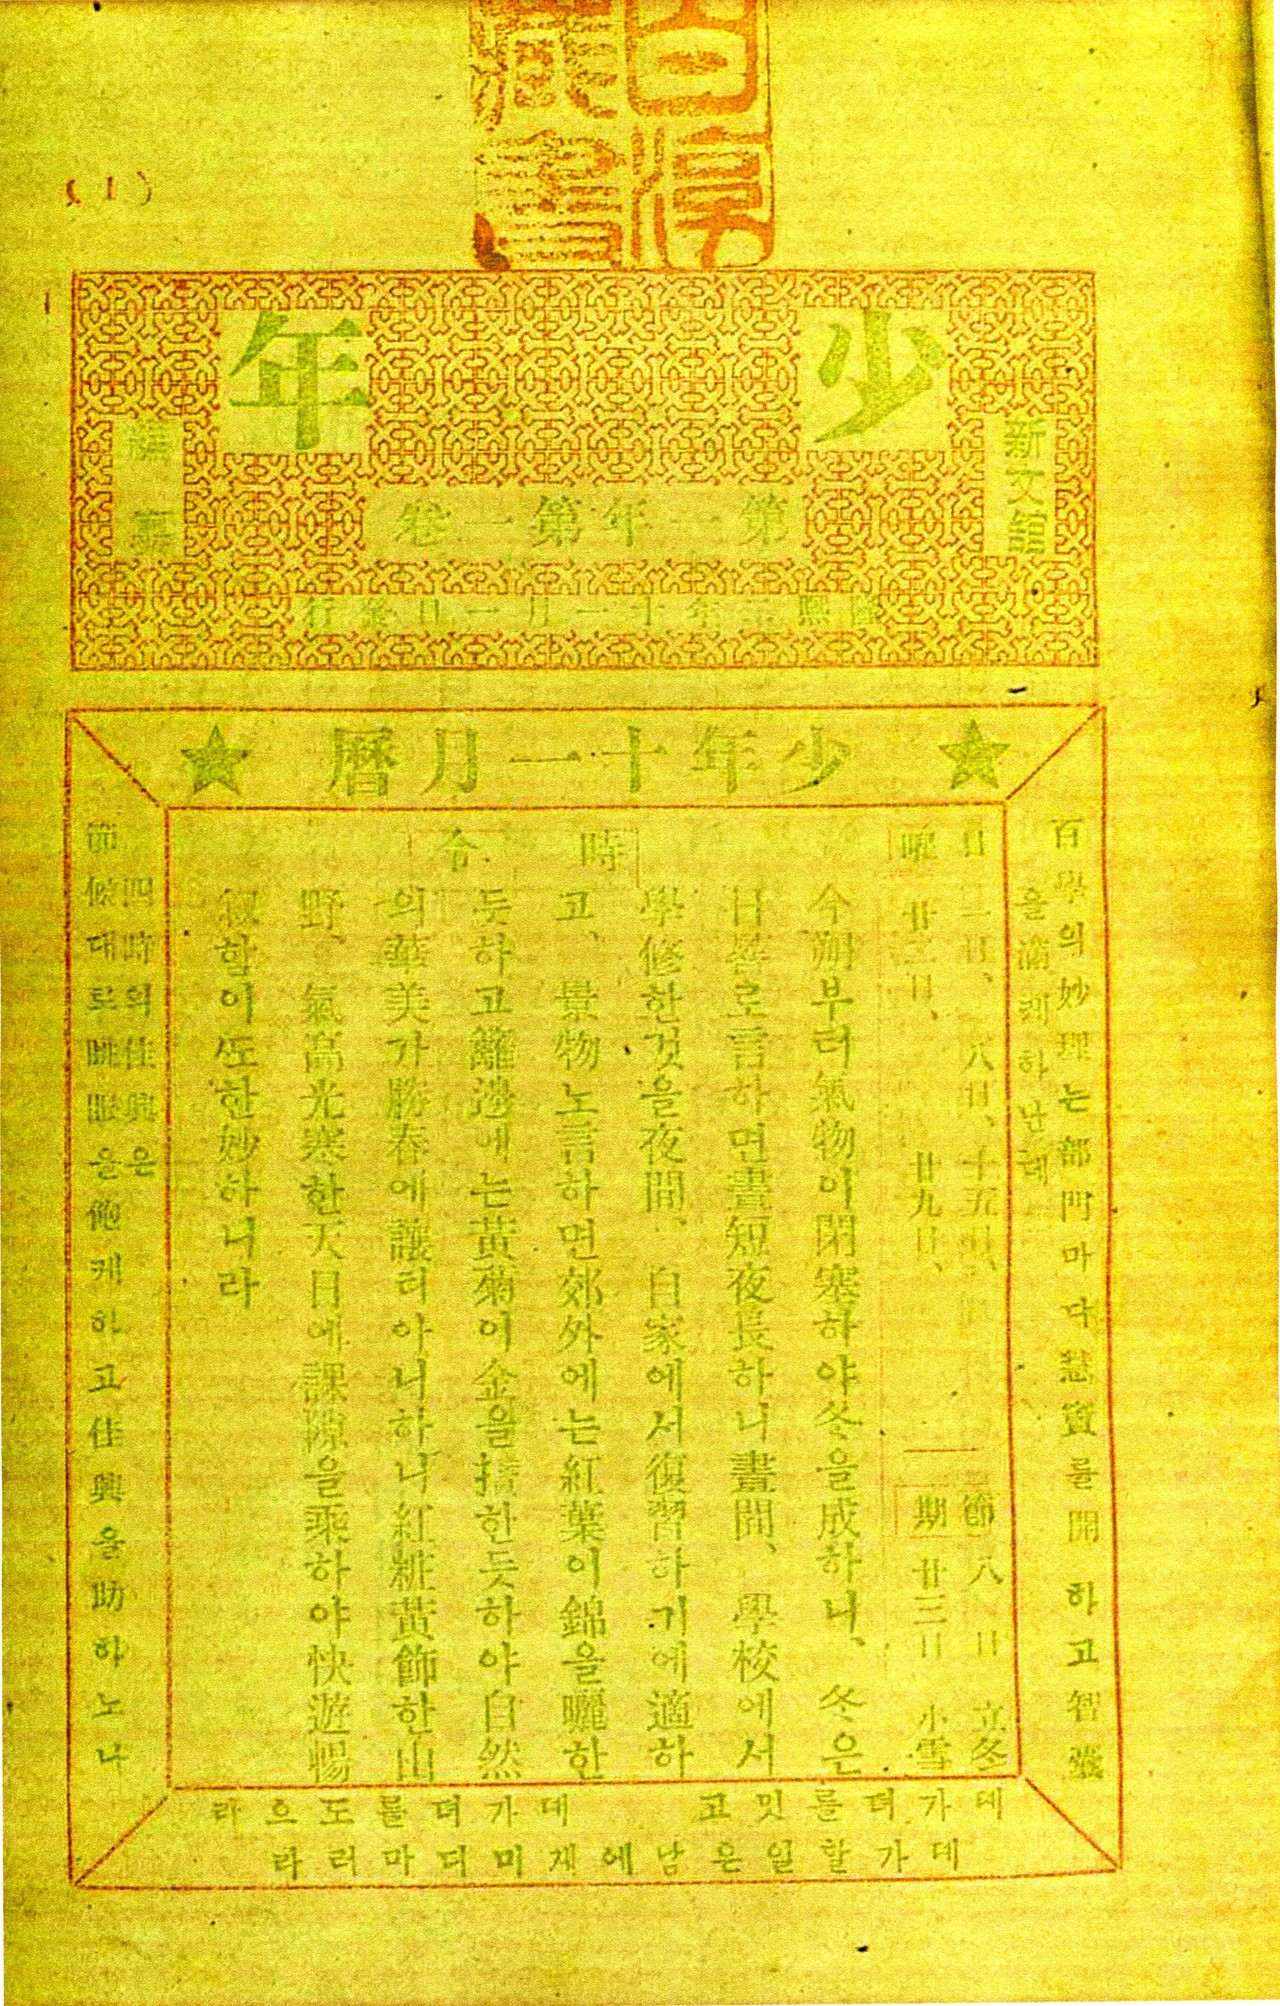 (1)
少年
新文館
編纂
第一年第一卷
隆熙二年十一月一日發行
★少年十一月曆★
百學의妙理는部門마다慧竇를開하고智囊
을滿케하난대
日 一日、八日、十五日、
曜 廿二日、廿九日、
節 八日 立冬
期 廿三日 小雪
時令
今朔부터氣物이閉塞하야冬을成하니、冬은
日晷로言하면晝短夜長하니晝間、學校에서
學修한것을夜間、自家에서復習하기에適하
고、景物노言하면郊外에는紅葉이錦을曬한
듯하고籬邊에는黃菊이金을揩한듯하야自然
의華美가勝春에讓티아니하니紅粧黃飾한山
野、氣高光寒한天日에課隙을乘하야快遊暢
敍함이또한妙하니라
四時의佳興은
節候대로眺眼을飽케하고佳興을助하노나
데가뎌를밋고 데가뎌를도으라
데가할일은남에게미디마러라